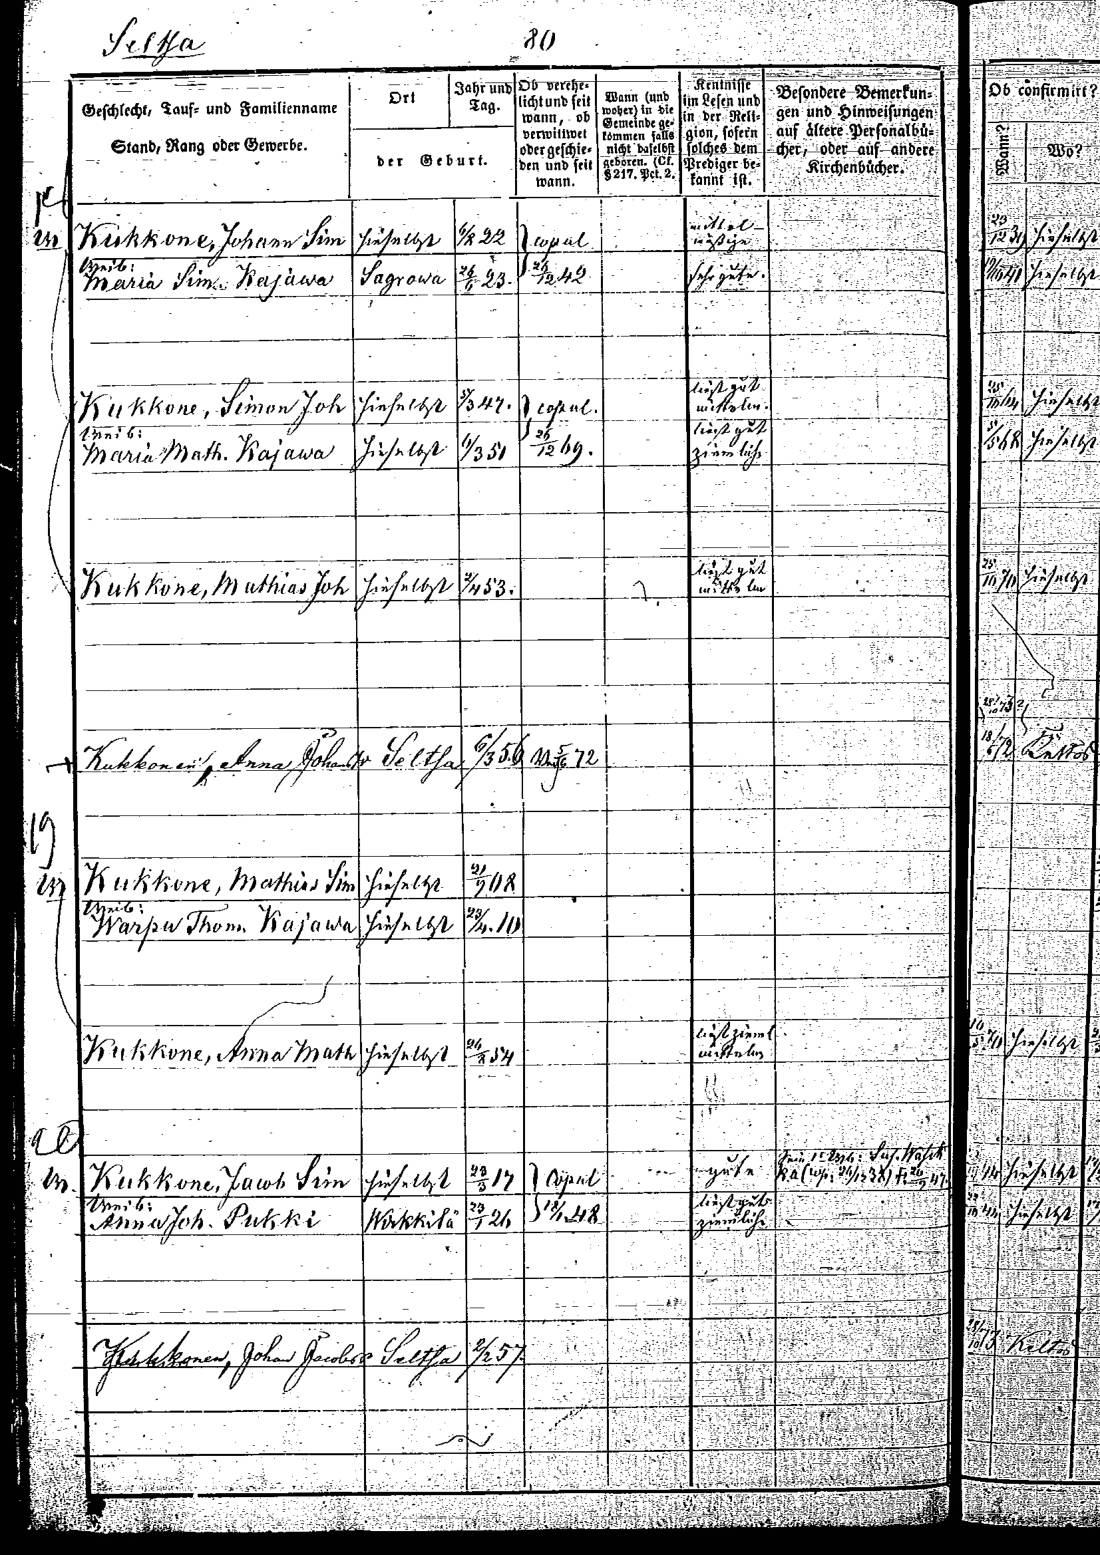 Seltsa 80
Geschlecht, Tauf- und Familienname
Stand, Rang oder Gewerbe.
Ort
Jahr und
Tag.
der Geburt.
Ob verehe-
licht und seit
wann, ob
verwittwet
oder geschie-
den und seit
wann.
Wann (und
woher) in die
Gemeinde ge-
kommen falls
nicht daselbst
geboren. (Cf.
§ 217. Pct. 2.
Kentnisse
im Lesen und
in der Reli-
gion, sofern
solches dem
Prediger be-
kannt ist.
Besondere Bemerkun-
gen und Hinweisungen
auf ältere Personalbü-
cher, oder auf andere
Kirchenbücher.
Ob confirmirt?
Wann?
Wo?
Kukkone, Johann Sim hieselbst 6/8 22 copul mittel-mässige hieselbst
Weib:
Maria Sim. Kajawa Sagrowa 26/6 23. 26/12 42 sehr gute. hieselbst
Kukkone, Simon Joh hieselbst 5/3 47. copul. liest gut hieselbst
Weib:
Maria Math. Kajawa hieselbst 6/3 51 26/12 69. liest gut ziemlich hieselbst
Kukkone, Mathias Joh hieselbst 2/4 53. liest gut 25/10 70 hieselbst
Kukkonen, Anna Johans Seltsa 6/3 56 72
19
Kukkone, Mathias Sim hieselbst 21/9 08
Weib:
Warpu Thom. Kajawa hieselbst 23/4. 10
Kukkone, Anna Math hieselbst 26/8 54 liest zieml hieselbst
Kukkone, Jacob Sim hieselbst 23/3 17 Copul gute hieselbst
Weib:
Anna Joh. Pukki Wirkkilä 23/1 26 18/1 48 liest gut ziemlich hieselbst
Kukkonen, Johan Jacobs Seltsa 2/2 57. Keltos